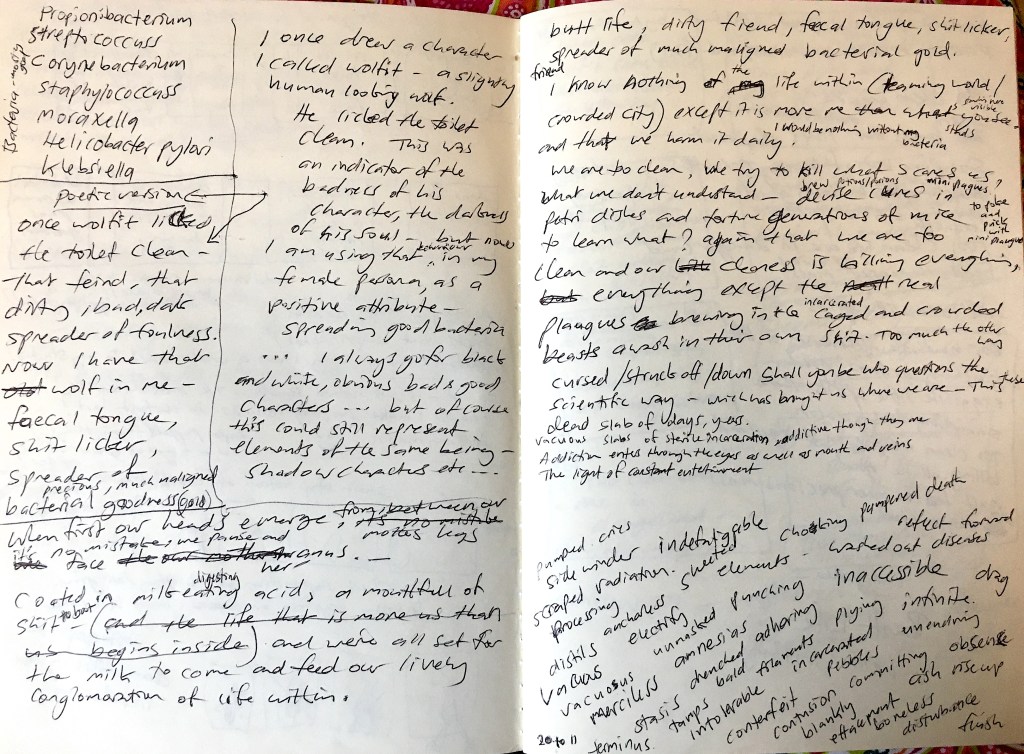 Propionibacterium
Strepticoccuss
Corynebacterium
Staphylococcuss
Moraxella
Helicobacter pylori
Klebsiella
Bacteria - mostly
poetic version
once wolfit licked
the toilet clean -
that feind, that
dirty, bad, dark
spreader of foulness.
Now I have that
wolf in me -
faecal tongue,
shit licker,
spreader of
precious, much maligned
bacterial goodness (gold)
I once drew a character
I called wolfit - a slightly
human looking wolf.
He licked the toilet
clean. This was
an indicator of the
badness of his
character, the darkness
of his soul - but now
I am using that behaviour in my
female persona, as a
positive attribute -
spreading good bacteria
... I always go for black
and white, obvious bad & good
characters ... but of course
this could still represent
elements of the same being -
shadow characters etc ...
When first our heads emerge, from between our
mothers legs
it's no mistake, we pause and
face her anus. -
Coated in milk digesting acids, a mouthful of
shit - to boot (and the life that is more us than
us begins inside) and we're all set for
the milk to come and feed our lively
conglomoration of life within.
butt life, dirty fiend, faecal tongue, shit licker,
friend
spreader of much maligned bacterial gold.
I know nothing of the life within (teaming world/
crowded city) except it is more me than what you see -
and that we harm it daily. I would be nothing without my bacteria
we are too clean, we try to kill what scares us,
what we don't understand - brew potions/poisons mini plagues,
devise cures in
petri dishes and torture generations of mice to poke and prick with mini plagues
to learn what? again that we are too
clean and our cleaness is killing everything,
everything except the real
plaagues brewing in the incarcerated caged and crowded
beasts awash in their own shit. Too much the other way
cursed / struck off / down shall you be who questions the
scientific way - which has brought us where we are - This
dead slab of days, years.
vacuous slabs of sterile incarceration, addictive though they are
Addiction enters through the eyes as well as mouth and veins
The light of constant entertainment
pumped cries
sidewinder indefatiggable
scraped radiation. choking pampered death
processing anchorless sheeted reflect forward
distils electrify elements - washed out diseases
vacuas unmasked punching
vacuosus amnesias inaccessible
merciless adhoring plying drag
stasis drenched filaments infinite.
terminus. tamps bald incarcerated unending
intolarable pebbles
conterfeit committing obsense
contusion ash rise up
blankly boneless
effacement disturbance
finish
20 to 11